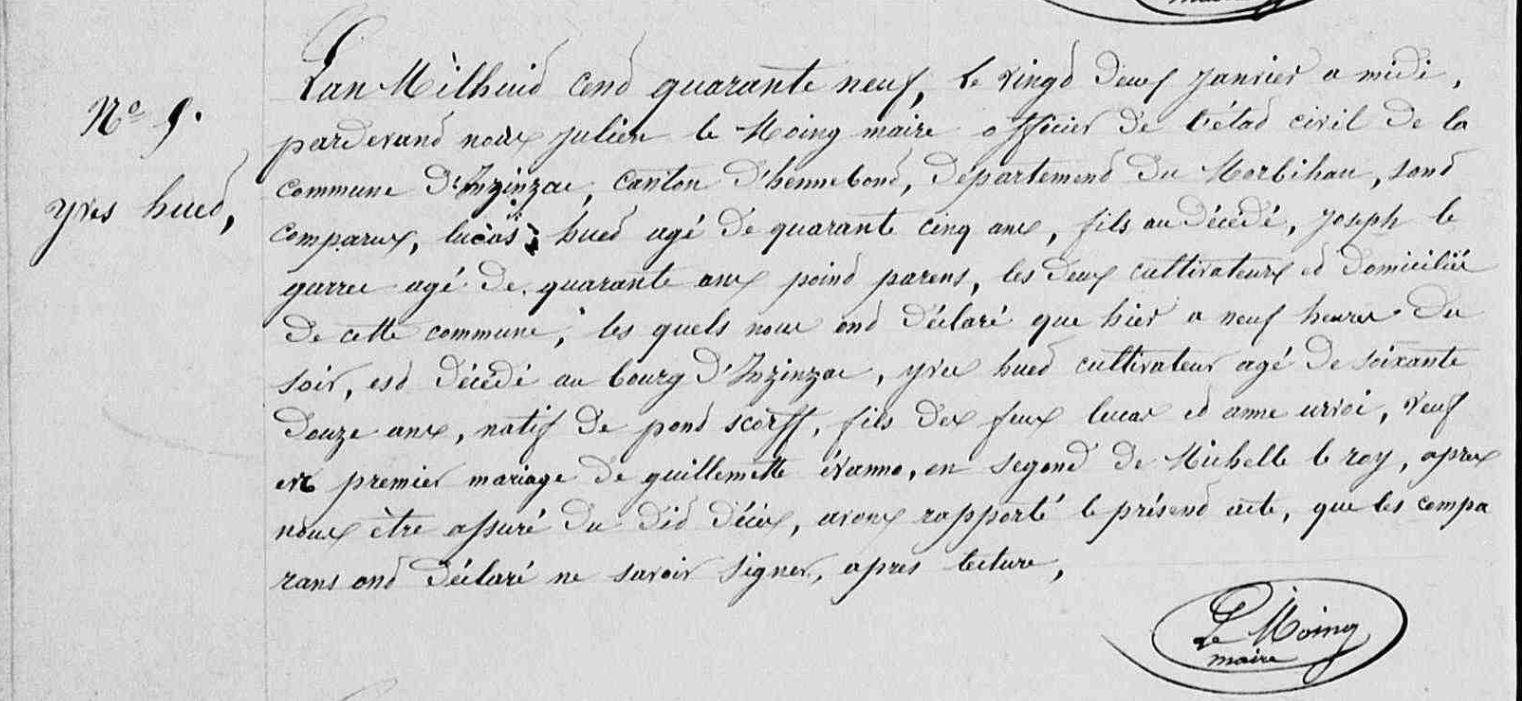 maire
Lan Milhuit cent quarante neuf, le vingt deux janvier a midi,
N° 5.
pardevant nous julien le Moing maire officier de l'état civil de la
commune d'Inzinzac, canton d'hennebont, département du Morbihan, sont
yves huet,
comparus, lucas huet agé de quarante cinq ans, fils au décédé, joseph le
garrec agé de quarante ans point parens, les deux cultivateurs et domiciliés
de cette commune, les quels nous ont déclaré que hier a neuf heures du
soir, est décédé au bourg d'Inzinzac, yves huet cultivateur agé de soixante
douze ans, natif de pont scorff, fils des feux lucas et anne urvoi, veuf
en premier mariage de guillemette évanno, en segond de Michelle le roy, apres
nous être assuré du dit décès, avons rapporté le présent acte, que les compa
rans ont déclaré ne savoir signer, apres lecture,
Le Moing
maire